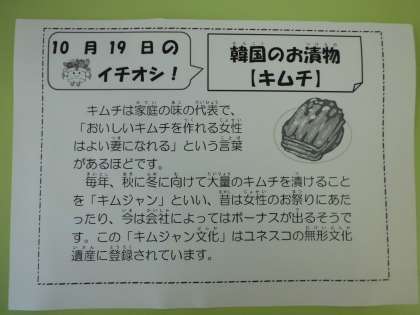 10月19日の
イチオシ！
韓国のお漬物
【キムチ】
キムチは家庭の味の代表で、
「おいしいキムチを作れる女性
はよい妻になれる」という言葉
があるほどです。
毎年、秋に冬に向けて大量のキムチを漬けること
を「キムジャン」といい、昔は女性のお祭りにあた
ったり、今は会社によってはボーナスが出るそうで
す。この「キムジャン文化」はユネスコの無形文化
遺産に登録されています。